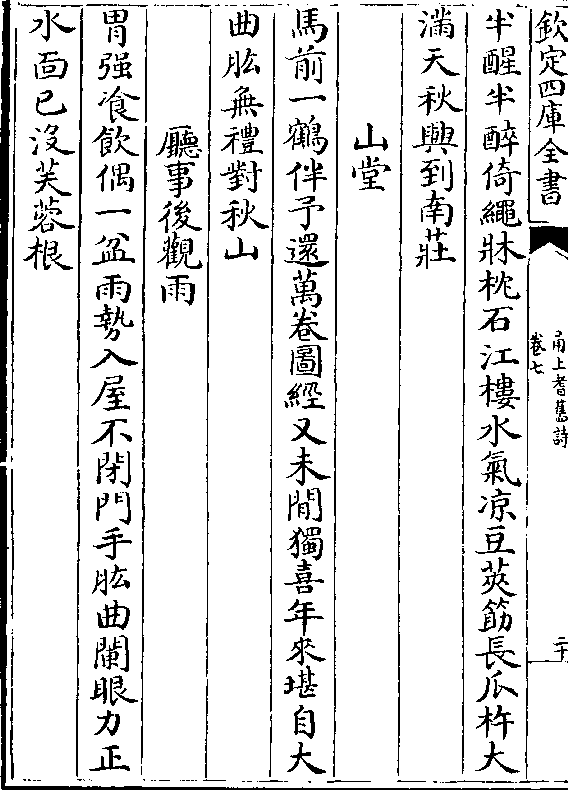 欽定四庫全書
甬上耆舊詩
卷七
二十
半醒半醉倚繩牀枕石江樓水氣凉豆莢筯長瓜杵大
滿天秋興到南莊
山堂
馬前一鶴伴予還萬卷圖經又未閒獨喜年來堪自大
曲肱無禮對秋山
廳事後觀雨
胃强飡飲偶一盆雨勢入屋不閉門手肱曲闌眼力正
水面已沒芙蓉根